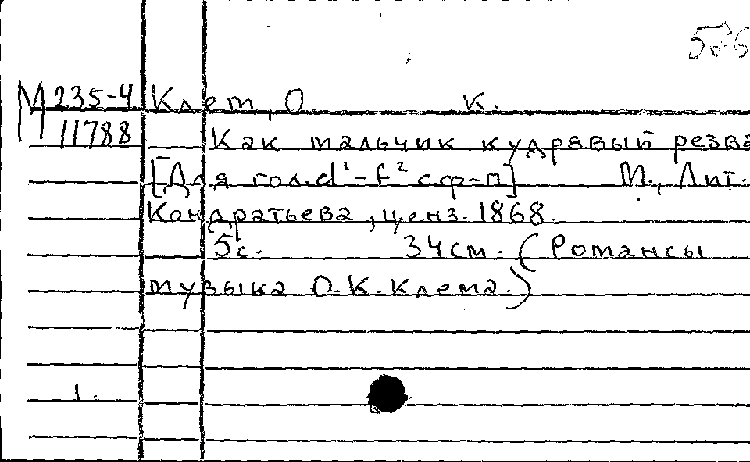 М 235-4 Клем, О. К.
11788 Как мальчик кудрявый резва
[Для гол. d¹-f² с ф-п] М., Лит.
Кондратьева, ценз. 1868.
5 с. 34 см. (Романсы
музыка О.К. Клема.)
1.